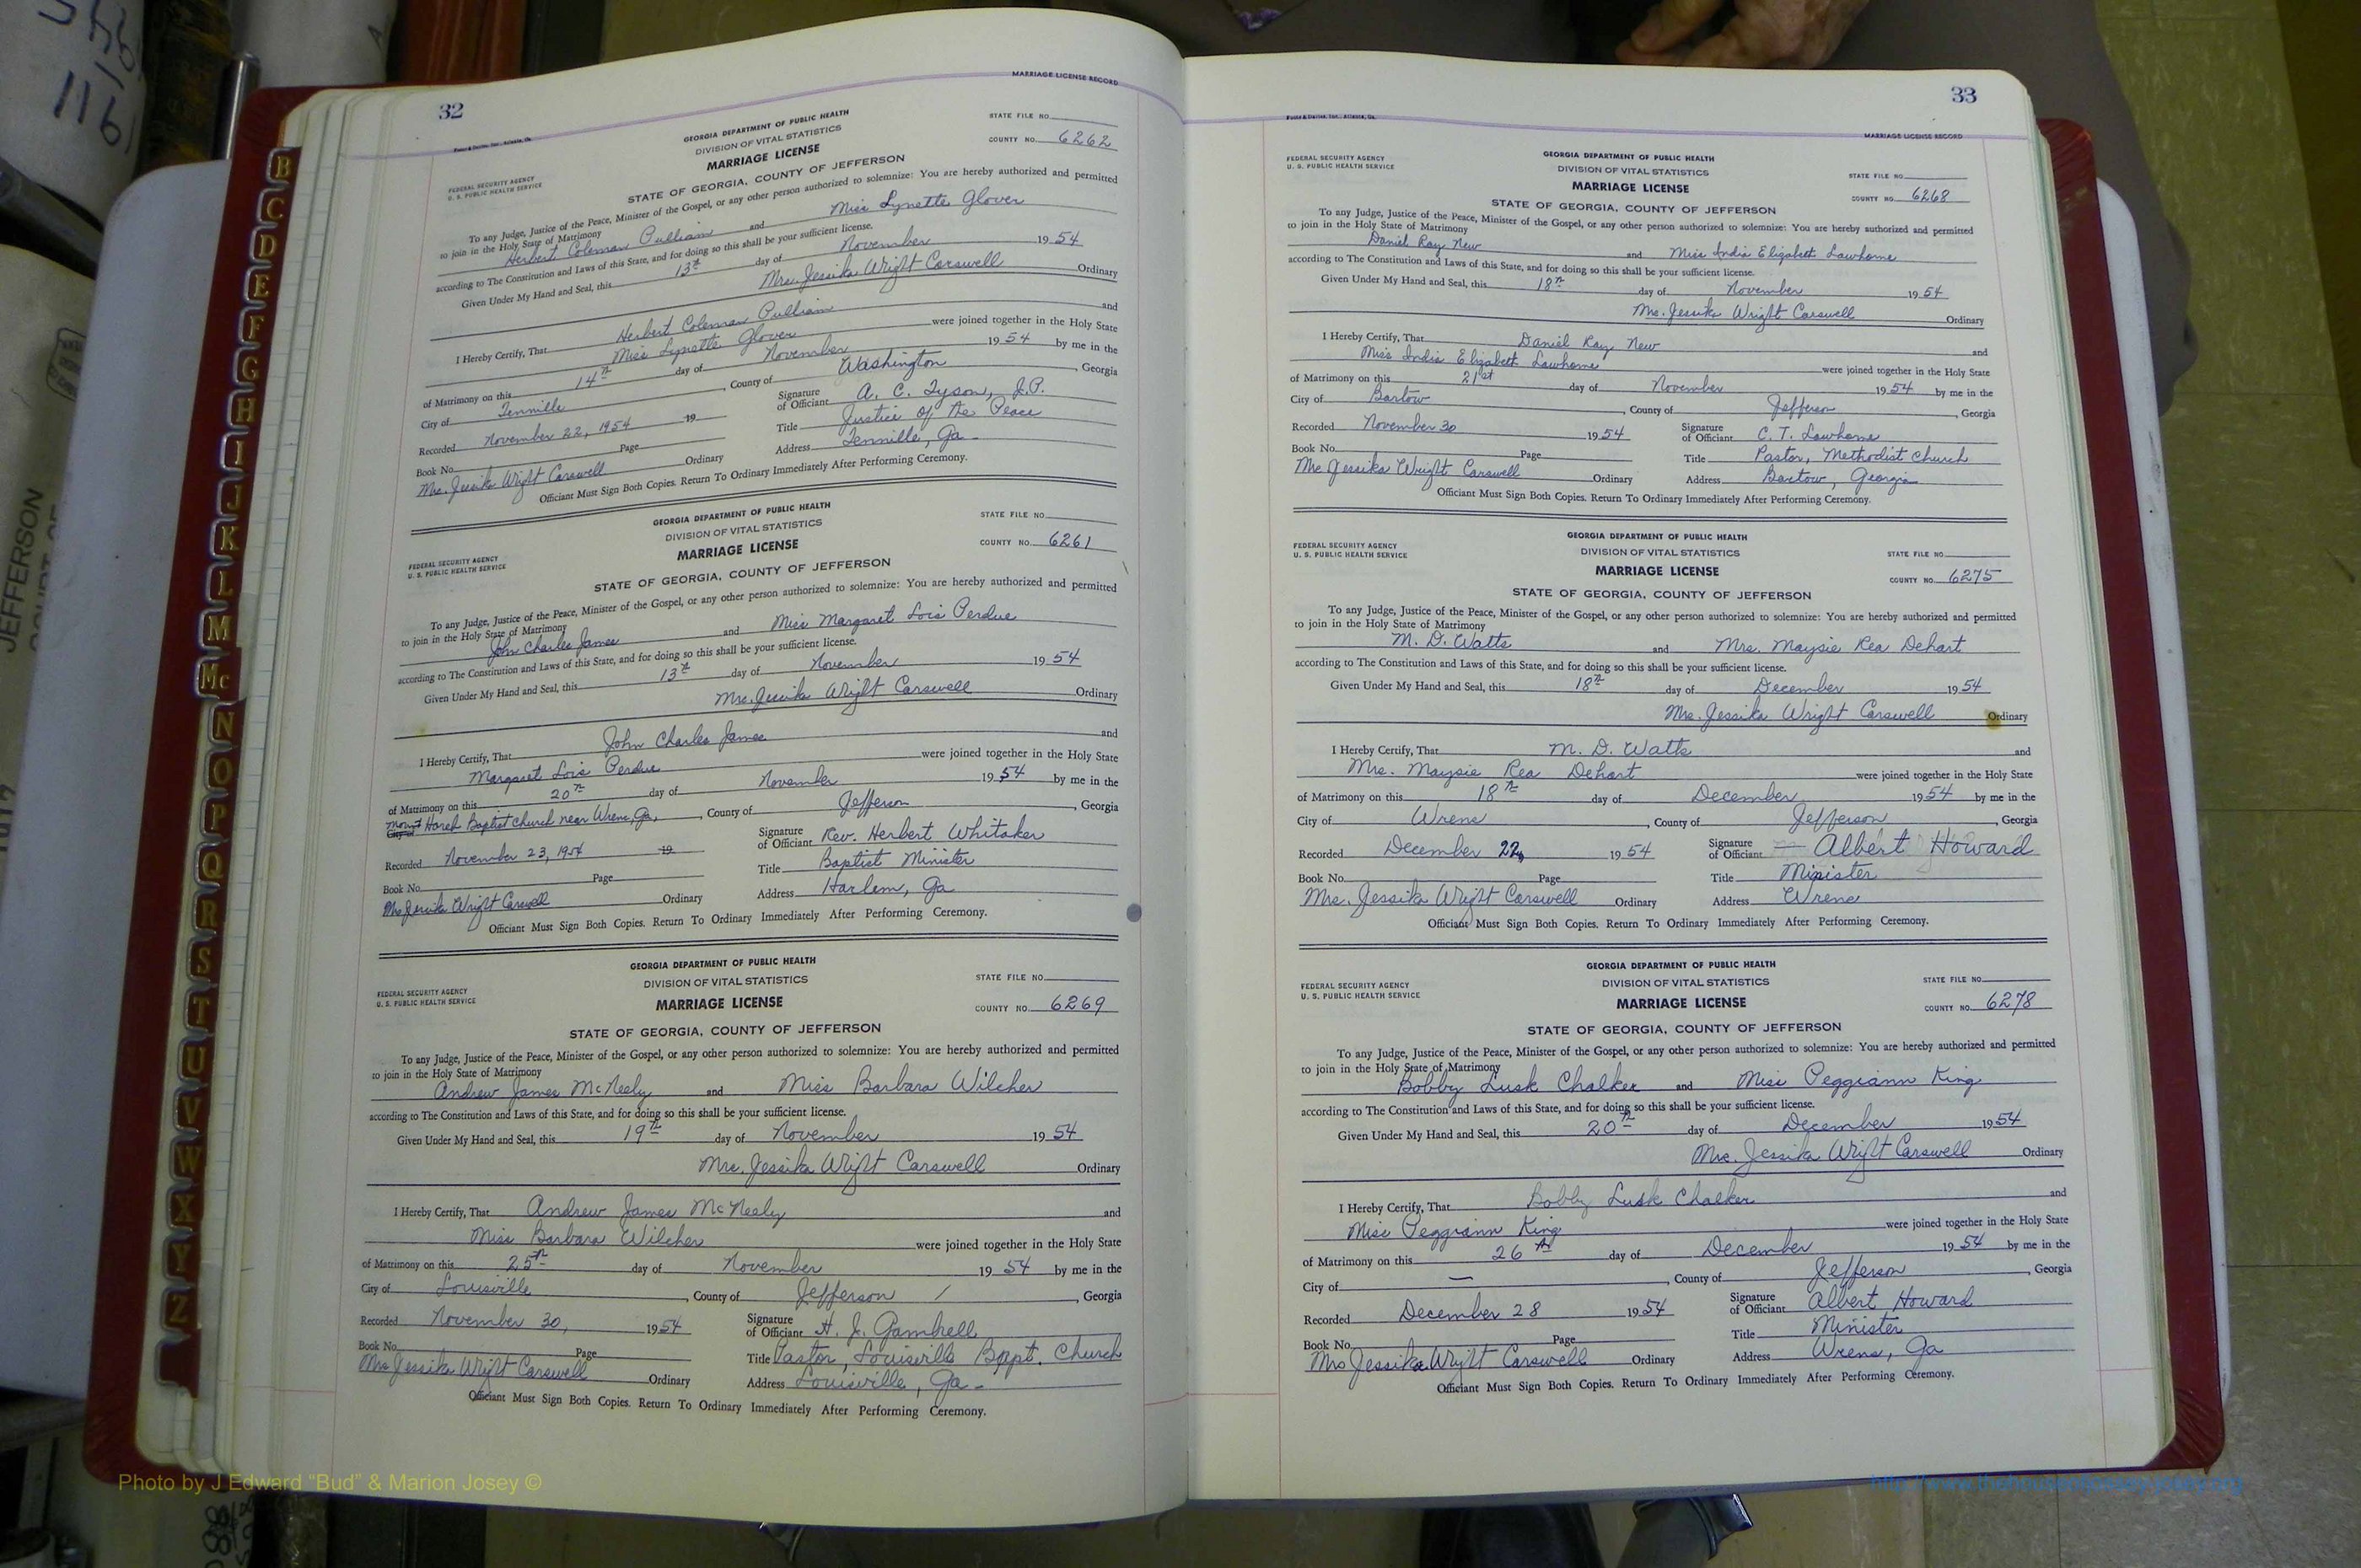 32
MARRIAGE LICENSE RECORD
GEORGIA DEPARTMENT OF PUBLIC HEALTH
DIVISION OF VITAL STATISTICS
MARRIAGE LICENSE
STATE FILE NO.
COUNTY NO. 6262
FEDERAL SECURITY AGENCY
U. S. PUBLIC HEALTH SERVICE
STATE OF GEORGIA, COUNTY OF JEFFERSON
To any Judge, Justice of the Peace, Minister of the Gospel, or any other person authorized to solemnize: You are hereby authorized and permitted
to join in the Holy State of Matrimony
Herbert Coleman Pulliam and Miss Lynette Glover
according to The Constitution and Laws of this State, and for doing so this shall be your sufficient license.
Given Under My Hand and Seal, this 13th day of November 1954
Mrs. Jessika Wright Carswell Ordinary
I Hereby Certify, That Herbert Coleman Pulliam and
Miss Lynette Glover were joined together in the Holy State
of Matrimony on this 14th day of November 1954 by me in the
City of Tennille, County of Washington, Georgia
Recorded November 22, 1954 19
Signature of Officiant A. C. Tyson, J.P.
Title Justice of the Peace
Book No. Page
Address Tennille, Ga.
Mrs. Jessika Wright Carswell Ordinary
Officiant Must Sign Both Copies. Return To Ordinary Immediately After Performing Ceremony.
GEORGIA DEPARTMENT OF PUBLIC HEALTH
DIVISION OF VITAL STATISTICS
MARRIAGE LICENSE
STATE FILE NO.
COUNTY NO. 6261
FEDERAL SECURITY AGENCY
U. S. PUBLIC HEALTH SERVICE
STATE OF GEORGIA, COUNTY OF JEFFERSON
To any Judge, Justice of the Peace, Minister of the Gospel, or any other person authorized to solemnize: You are hereby authorized and permitted
to join in the Holy State of Matrimony
John Charles James and Miss Margaret Lois Perdue
according to The Constitution and Laws of this State, and for doing so this shall be your sufficient license.
Given Under My Hand and Seal, this 13th day of November 1954
Mrs. Jessika Wright Carswell Ordinary
I Hereby Certify, That John Charles James and
Margaret Lois Perdue were joined together in the Holy State
of Matrimony on this 20th day of November 1954 by me in the
Mount City of Horeb Baptist Church near Wrens, Ga., County of Jefferson, Georgia
Recorded November 23, 1954 19
Signature of Officiant Rev. Herbert Whitaker
Title Baptist Minister
Book No. Page
Address Harlem, Ga
Mrs Jessika Wright Carswell Ordinary
Officiant Must Sign Both Copies. Return To Ordinary Immediately After Performing Ceremony.
GEORGIA DEPARTMENT OF PUBLIC HEALTH
DIVISION OF VITAL STATISTICS
MARRIAGE LICENSE
STATE FILE NO.
COUNTY NO. 6269
FEDERAL SECURITY AGENCY
U. S. PUBLIC HEALTH SERVICE
STATE OF GEORGIA, COUNTY OF JEFFERSON
To any Judge, Justice of the Peace, Minister of the Gospel, or any other person authorized to solemnize: You are hereby authorized and permitted
to join in the Holy State of Matrimony
Andrew James McNeely and Miss Barbara Wilcher
according to The Constitution and Laws of this State, and for doing so this shall be your sufficient license.
Given Under My Hand and Seal, this 19th day of November 1954
Mrs. Jessika Wright Carswell Ordinary
I Hereby Certify, That Andrew James McNeely and
Miss Barbara Wilcher were joined together in the Holy State
of Matrimony on this 25th day of November 1954 by me in the
City of Louisville, County of Jefferson, Georgia
Recorded November 30, 1954
Signature of Officiant H. J. Gambrell
Book No. Page
Title Pastor, Louisville Bapt. Church
Mrs Jessika Wright Carswell Ordinary
Address Louisville, Ga.
Officiant Must Sign Both Copies. Return To Ordinary Immediately After Performing Ceremony.
33
MARRIAGE LICENSE RECORD
FEDERAL SECURITY AGENCY
U. S. PUBLIC HEALTH SERVICE
GEORGIA DEPARTMENT OF PUBLIC HEALTH
DIVISION OF VITAL STATISTICS
MARRIAGE LICENSE
STATE FILE NO.
COUNTY NO. 6268
STATE OF GEORGIA, COUNTY OF JEFFERSON
To any Judge, Justice of the Peace, Minister of the Gospel, or any other person authorized to solemnize: You are hereby authorized and permitted
to join in the Holy State of Matrimony
Daniel Ray New and Miss India Elizabeth Lawhorne
according to The Constitution and Laws of this State, and for doing so this shall be your sufficient license.
Given Under My Hand and Seal, this 18th day of November 1954
Mrs. Jessika Wright Carswell Ordinary
I Hereby Certify, That Daniel Ray New and
Miss India Elizabeth Lawhorne were joined together in the Holy State
of Matrimony on this 21st day of November 1954 by me in the
City of Bartow, County of Jefferson, Georgia
Recorded November 30 1954
Signature of Officiant C. T. Lawhorne
Book No. Page
Title Pastor, Methodist Church
Mrs Jessika Wright Carswell Ordinary
Address Bartow, Georgia
Officiant Must Sign Both Copies. Return To Ordinary Immediately After Performing Ceremony.
GEORGIA DEPARTMENT OF PUBLIC HEALTH
DIVISION OF VITAL STATISTICS
MARRIAGE LICENSE
FEDERAL SECURITY AGENCY
U. S. PUBLIC HEALTH SERVICE
STATE FILE NO.
COUNTY NO. 6275
STATE OF GEORGIA, COUNTY OF JEFFERSON
To any Judge, Justice of the Peace, Minister of the Gospel, or any other person authorized to solemnize: You are hereby authorized and permitted
to join in the Holy State of Matrimony
M. D. Watts and Mrs. Maysie Rea Dehart
according to The Constitution and Laws of this State, and for doing so this shall be your sufficient license.
Given Under My Hand and Seal, this 18th day of December 1954
Mrs. Jessika Wright Carswell Ordinary
I Hereby Certify, That M. D. Watts and
Mrs. Maysie Rea Dehart were joined together in the Holy State
of Matrimony on this 18th day of December 1954 by me in the
City of Wrens, County of Jefferson, Georgia
Recorded December 22, 1954
Signature of Officiant Albert Howard
Book No. Page
Title Minister
Mrs. Jessika Wright Carswell Ordinary
Address Wrens
Officiant Must Sign Both Copies. Return To Ordinary Immediately After Performing Ceremony.
GEORGIA DEPARTMENT OF PUBLIC HEALTH
DIVISION OF VITAL STATISTICS
MARRIAGE LICENSE
FEDERAL SECURITY AGENCY
U. S. PUBLIC HEALTH SERVICE
STATE FILE NO.
COUNTY NO. 6278
STATE OF GEORGIA, COUNTY OF JEFFERSON
To any Judge, Justice of the Peace, Minister of the Gospel, or any other person authorized to solemnize: You are hereby authorized and permitted
to join in the Holy State of Matrimony
Bobby Lusk Chalker and Miss Peggiann King
according to The Constitution and Laws of this State, and for doing so this shall be your sufficient license.
Given Under My Hand and Seal, this 20th day of December 1954
Mrs. Jessika Wright Carswell Ordinary
I Hereby Certify, That Bobby Lusk Chalker and
Miss Peggiann King were joined together in the Holy State
of Matrimony on this 26th day of December 1954 by me in the
City of —, County of Jefferson, Georgia
Recorded December 28 1954
Signature of Officiant Albert Howard
Title Minister
Book No. Page
Address Wrens, Ga
Mrs Jessika Wright Carswell Ordinary
Officiant Must Sign Both Copies. Return To Ordinary Immediately After Performing Ceremony.
B
C
D
E
F
G
H
I
J
K
L
M
Mc
N
O
P
Q
R
S
T
U
V
W
X
Y
Z
JEFFERSON
1161
Photo by J Edward “Bud” & Marion Josey ©